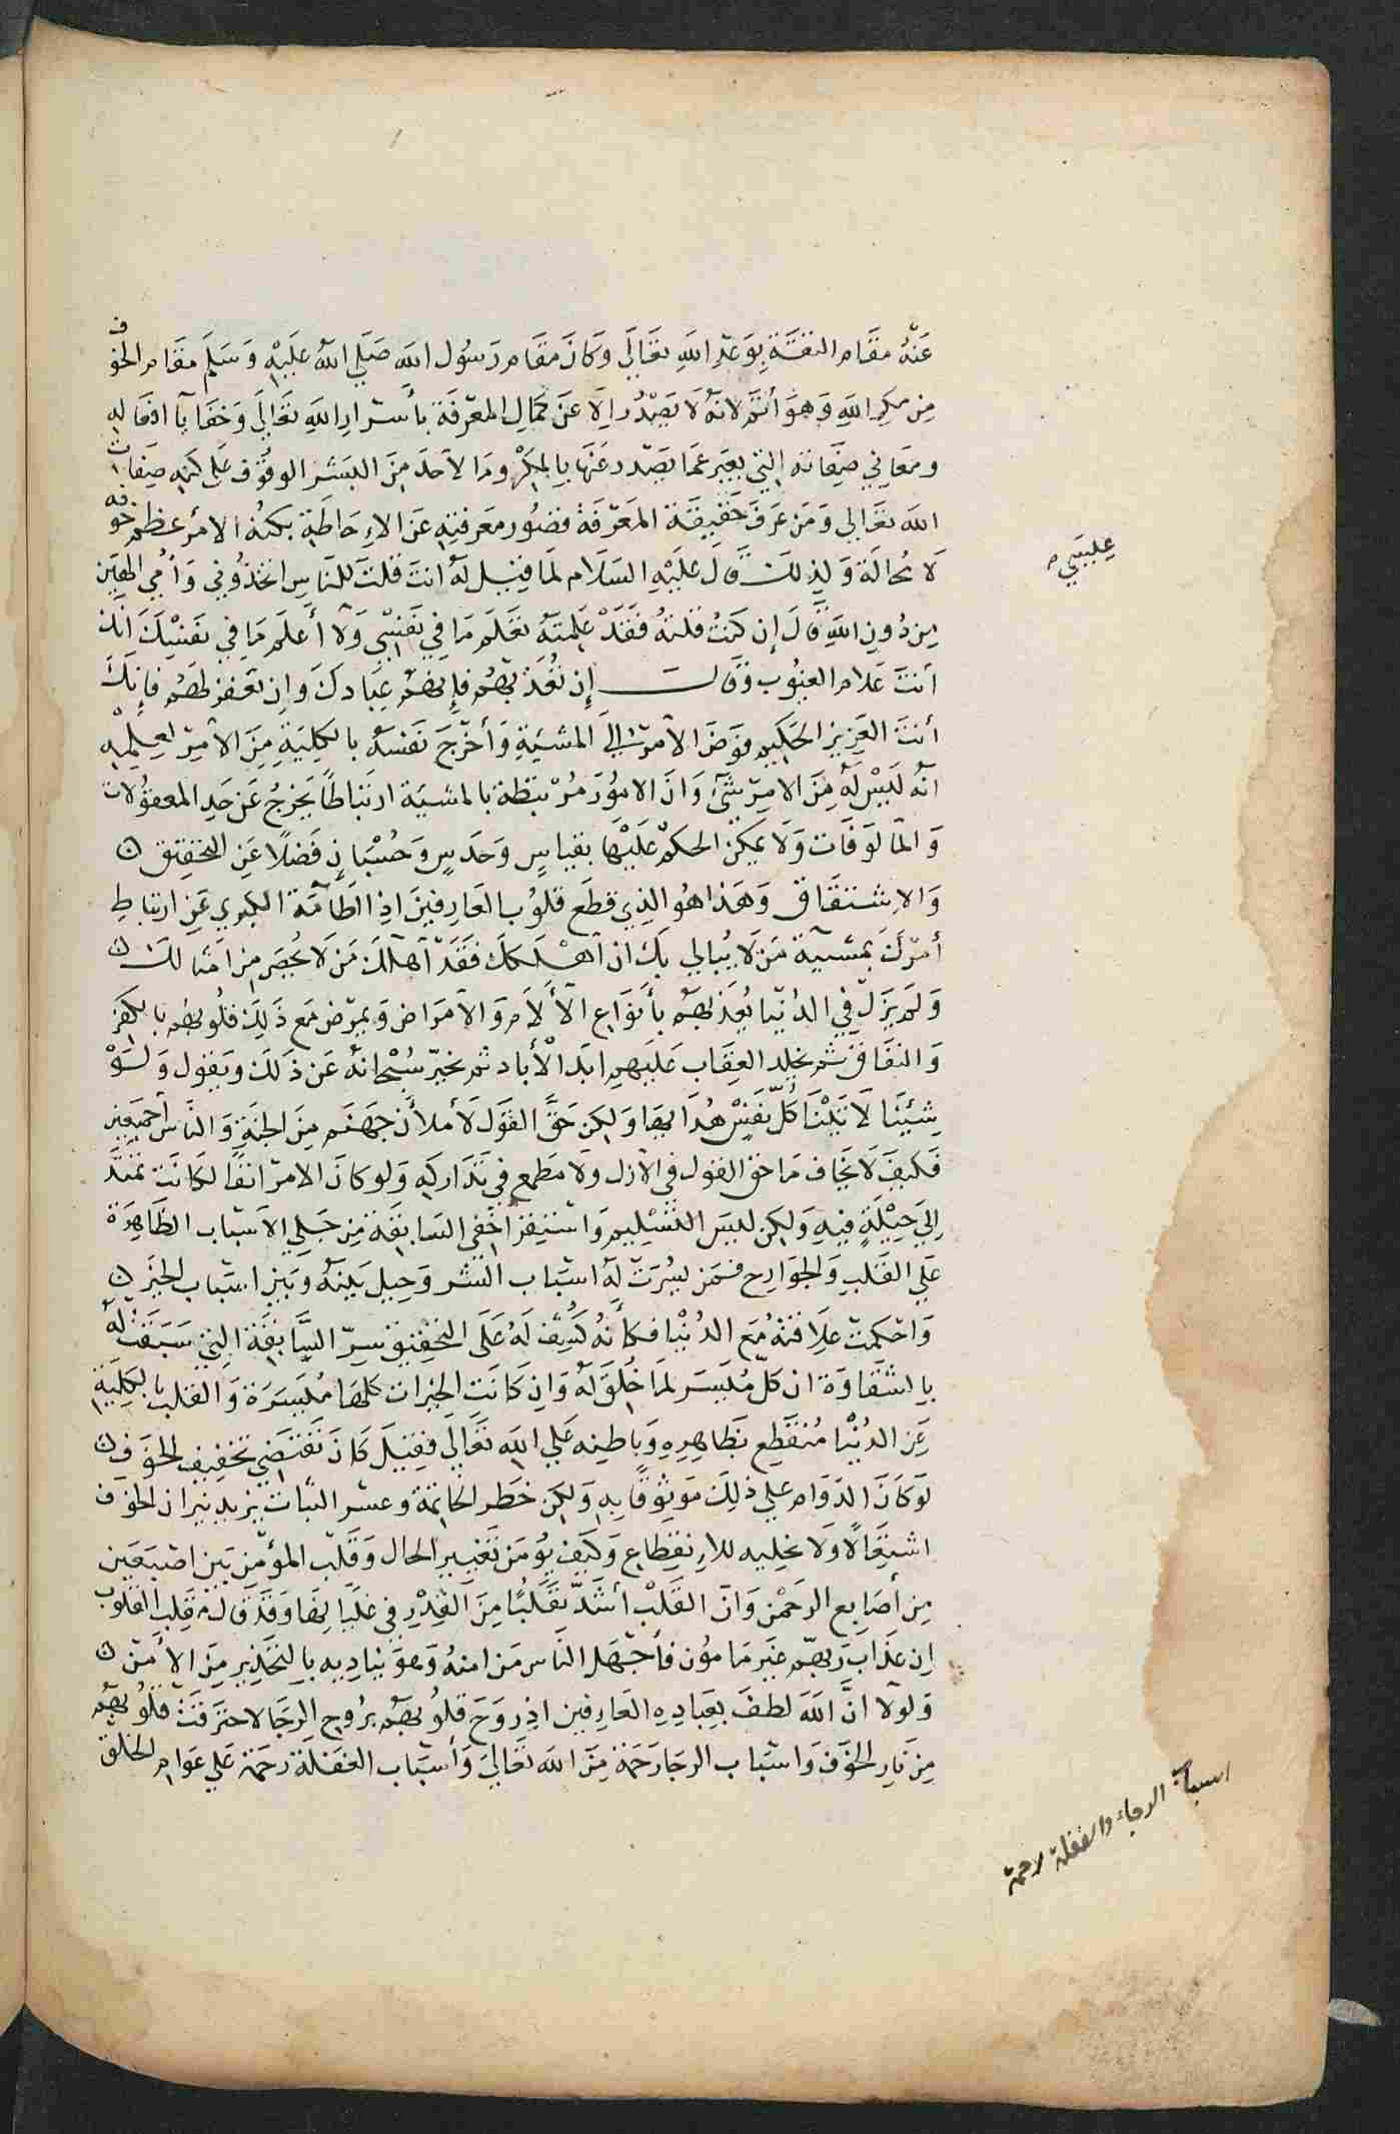 عَنْهُ مقَام الثقَّةِ بِوَعْدِ اللهِ تعَالَى وَكانَ مقَام رَسُول الله صَلَّى اللهُ عَلَيْهِ وَسَلَّم مقَام الخوف
مِن مكِر اللهِ وَهوَ أتَمّ لانهُ لا يَصْدُر اِلا عَن كمَالِ المعْرفَة بأسْرارِ اللهِ تعَالَى وَخفايا افعَالِه
ومعَاني صِفَاته التي يعبَر عمَا يَصْدر عَنهَا بِالمكرْ ومَا لاحَد مِنَ البَشر الوقُوف عَلى كنهِ صِفات
الله تعَالى وَمَن عَرفَ حَقيقَة المعَرّفَة قصُور معَرفتِهِ عَن الاِحَاطَةِ بكنه الامْر عظم خوفه
لا محَالَة وَلِذلِكَ قَالَ عَليْهِ السَلام لما قيل لهُ انتَ قلتَ للنَاسِ اتخذوُني وَأمي الهَين
مِن دُونِ اللهِ قَالَ إن كنتُ قلتهُ فقَدْ عَلِمتَهُ تعَلَم مَا في نفَسِي وَلا أَعلَم مَا في نفسْكَ انكَ
أنتَ عَلام الغيُوب وَقالَ إِن تعُذبْهُم فإنهُم عِبَادكَ وان تغفر لهُم فإنكَ
أنتَ العَزيز الحَكيم فوَضَ الامْر إلَى المشيَةِ وَأخْرَجَ نفسَهُ بالكليَةِ مِنَ الامْرِ لعِلمِهِ
انهُ ليَسْ لهُ مِنَ الامِرْ شَئ وَانَ الامُورَ مُرْتبَطة بالمشيَة ارتبَاطاً يخَرجُ عَن حَدِ المعقوُلات
وَالمَالوفَات وَلا يمكِن الحكمْ عَليْهَا بقياسٍ وَحَدسٍ وَحُسْبَانٍ فَضلًا عَنِ التحقيق
وَالاِسْتقَاق وَهَذا هوُ الذِي قطَع قلوُب العَارِفينَ اذِ الطَامَّة الكبري عَن ارتباطِ
أمْرِكَ بمشيَة مَن لا يُبالي بِكَ ان اهْلَككَ فقَدْ اهلكَ مَن لا يحُصَر مِن امثالكَ
وَلم يَزَلْ في الدُنْيَا يُعَذبهُم بأنوَاعِ الآلام وَالامَراض وَيمَرّض مَع ذلِكَ قلُوبهُم بالكفر
وَالنفَاق ثمَ يخلد العِقَاب عَليهِم ابَد الأباد ثم يخبّر سُبْحانهُ عَن ذلكَ ويقول وَلَوْ
شِئنَا لآتَيْنَا كُلّ نَفَسْ هُدَاهَا وَلكِن حَقَّ القَول لَأملأنّ جَهنَم مِنَ الجنَةِ وَالنَاس أجمَعِين
فَكيفَ لا يخَاف مَا حق القول في الازل ولا مَطمَع في تدَاركه وَلو كانَ الامْر انفًا لكانَت تمتدّ
اِلىَ حِيْلةٍ فيهِ وَلكِن ليسَ الا التسْلِيم وَاستقرَا خفَي السَابقَة مِن جَلي الاسْبَاب الظَاهِرَة
عَلى القَلبِ وَالجوَارِح فمَن يسُرَت لهُ اسْبَاب الشر وَحِيل بَينَهُ وَبَين اسْبَاب الخير
وَاحكمت عِلاقتهُ مَع الدُنيَا فكأنَهُ كُشِف لهُ عَلى التحقيق سِرّ السَّابقة التي سَبَقتْ لهُ
بالشقَاوَة ان كلّ مُيَسَر لمَا خُلِقَ لهُ وَان كانتَ الخيرات كلهَا مُيَسَرَة وَالقلب بالكليَةِ
عَنِ الدُنْيَا مُنقَطِع بظَاهِرِهِ وَبَاطنِه عَلي الله تعَالَى فقيلَ كانَ تقتضي تخفيف الخوف
لوَ كانَ الدَوام عَلي ذلِكَ مَوثوُقًا بِهِ وَلكِن خطَر الخَاتمَة وعسْر الثبات يزيد نيران الخوَف
اشتِعَالًا وَلا يخليه للاِنقِطَاعِ وَكيَف يُؤمَن تغَيير الحال وَقلب المؤمِن بَين اصْبَعَين
مِن أصَابِع الرَحمْن وَانّ القَلبْ أشَدّ تقَلبًا مِنَ القِدْرِ في غلَيَانِهَا وَقَدْ قَالَ مقَلِب القلوُب
اِن عَذابَ رَبهِم غيَر مَامُون فأجْهَل النَاس مَن امنهُ وَهوَ ينَادِيهِ بالتحَذِيرِ مِنَ الأمْن
وَلولا انَّ اللهَ لطفَ بِعِبَادِهِ العَارِفين اذِ رَوحَ قلُوبهُم بِرُوحِ الرجَا لاحترقَتْ قلُوبهُم
مِن نَارِ الخوَف وَاسْبَاب الرجَا رَحمَة مِنَ الله تعَالَى وَأسْبَاب الغفَلة رَحمَة عَلى عَوام الخلق
اسباب الرجاء والغفلة رحمة